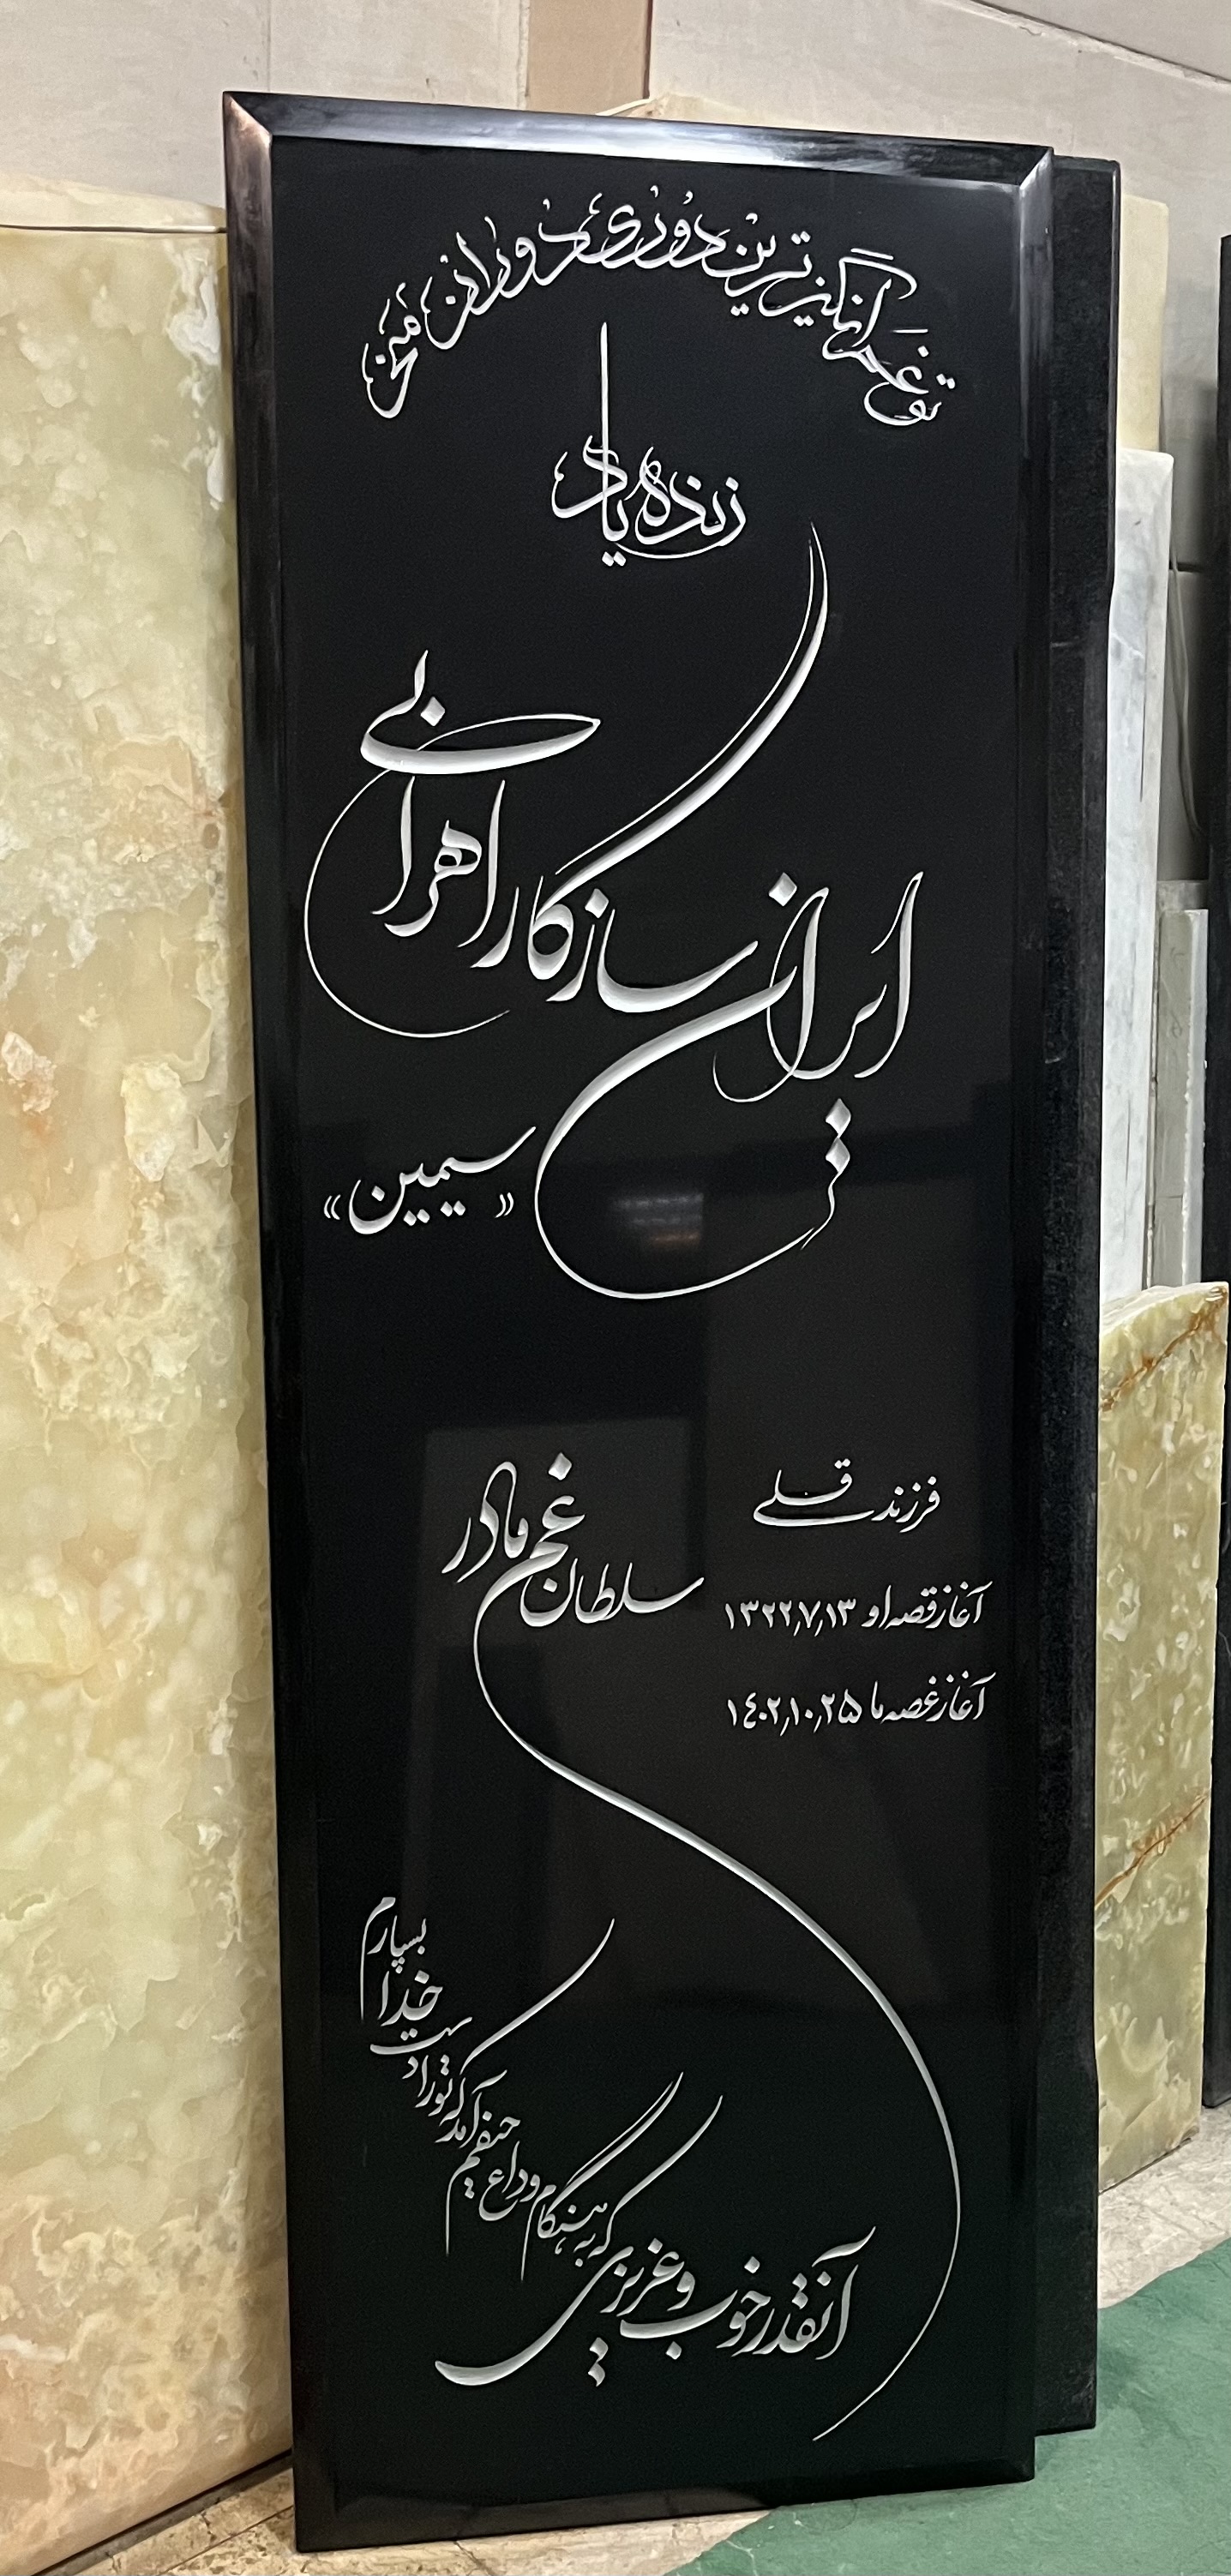 تو غم انگیز ترین دوریِ دوران منی
زنده یاد
ایران سازگار اهرابی
«سیمین»
فرزند قلی
سلطان غم مادر
آغاز قصه او ۱۳۲۲٫۷٫۱۳
آغاز غصه ما ۱۴۰۲٫۱۰٫۲۵
آنقدر خوب و عزیزی که به هنگام وداع
حیفم آمد که تو را دست خدا بسپارم